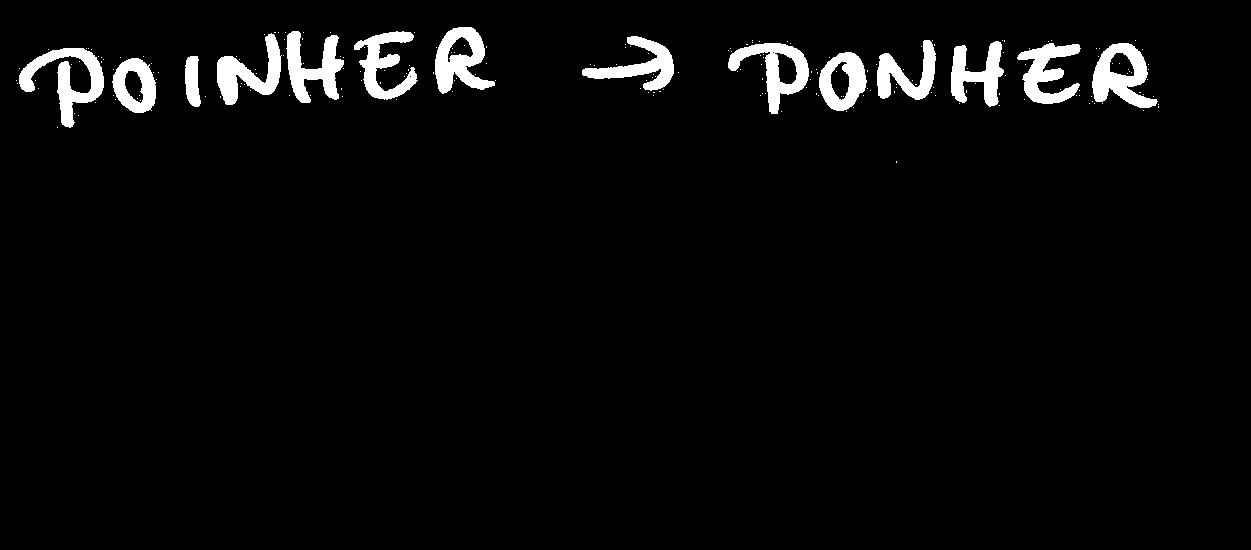 POINHER → PONHER